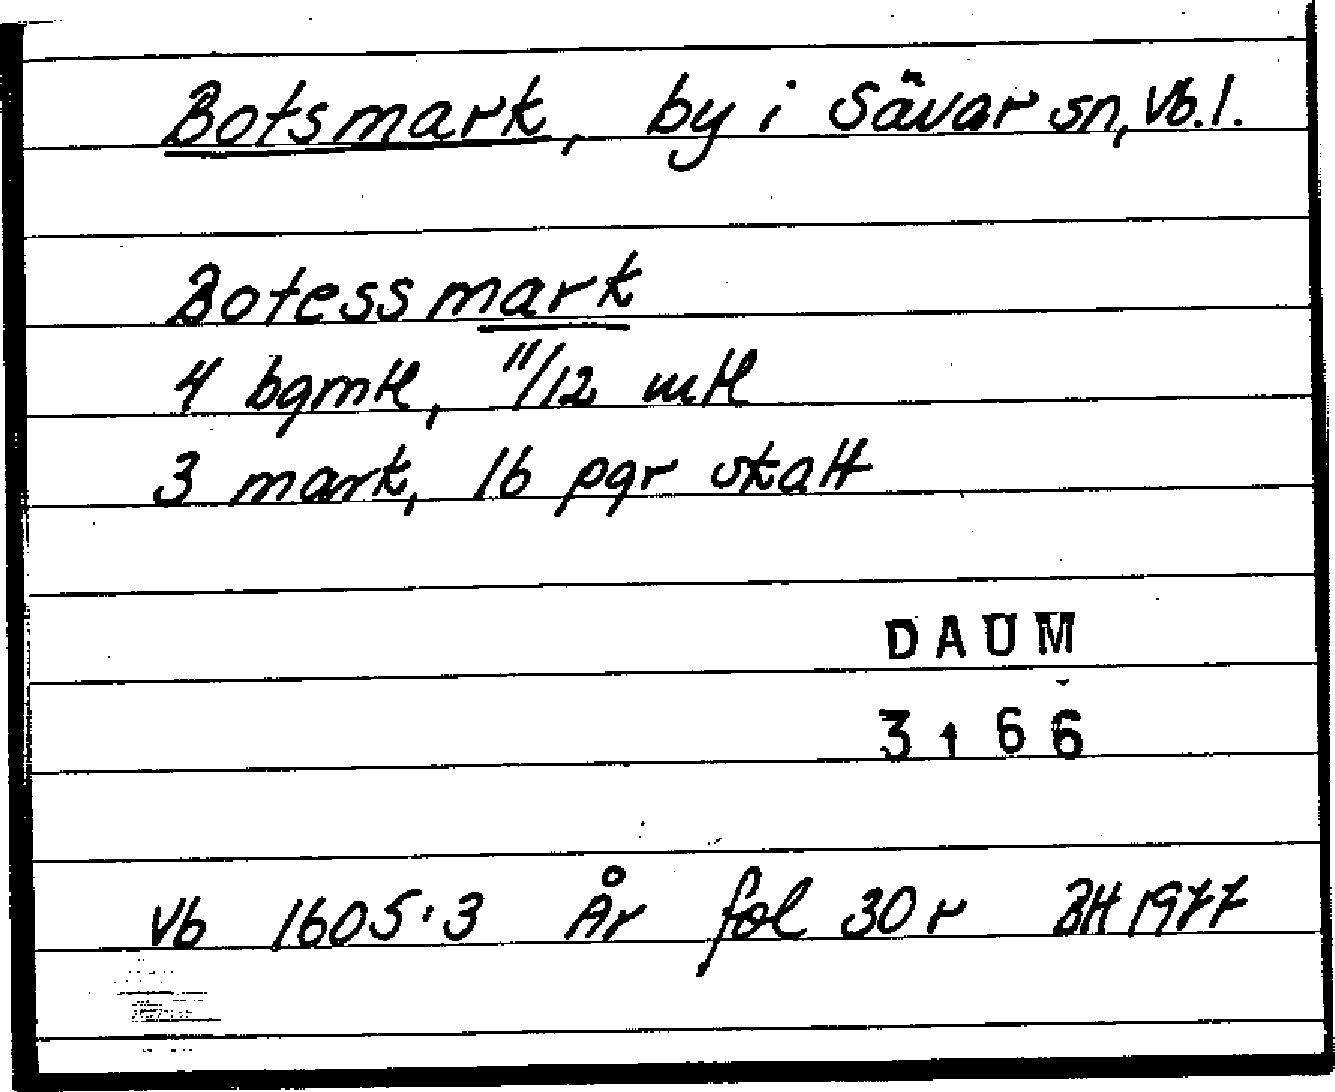 Botsmark, by i Sävar sn, Vb.l.
Botessmark
4 bgmtl, 11/12 mtl
3 mark, 16 pgr skatt
DAUM
3166
Vb 1605:3 År fol 30 r BH 1977